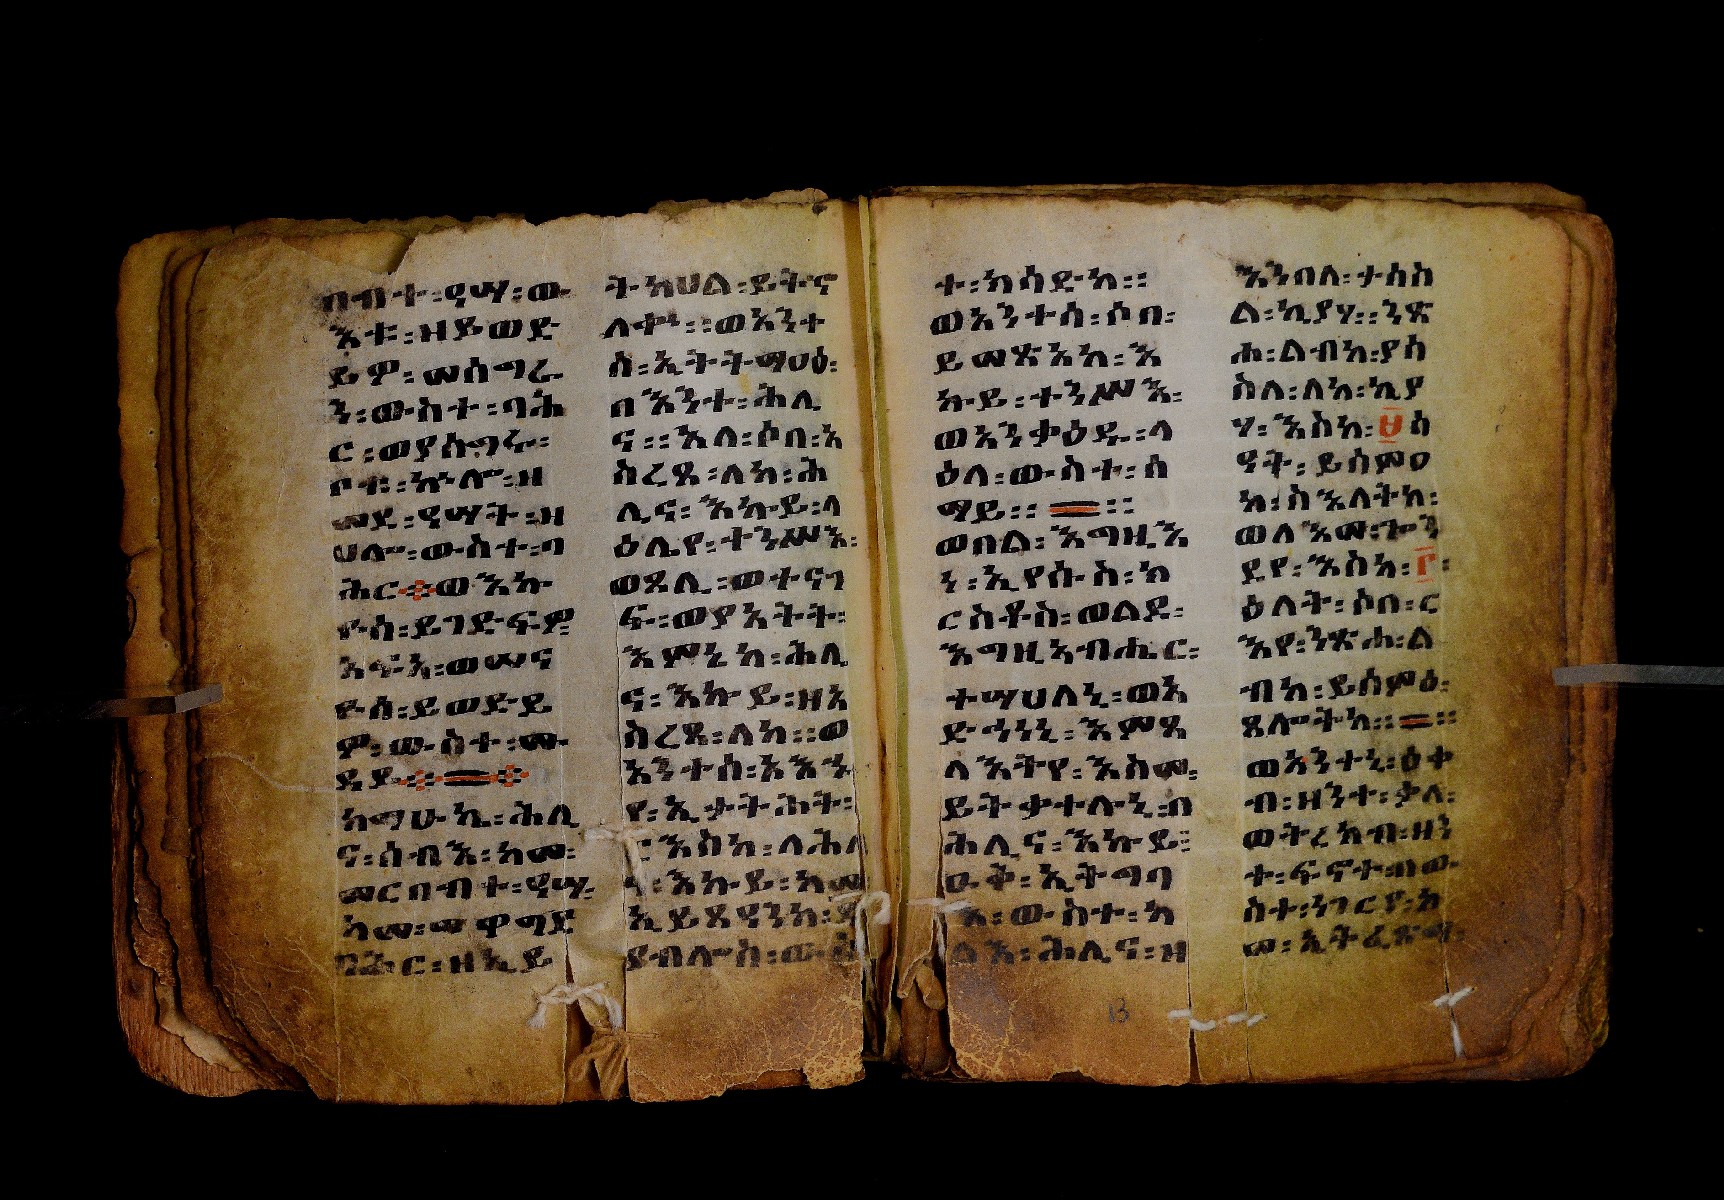 በብተ፡ዓሣ፡ው
እቱ፡ዘይወድ
ይዎ፡መስግረ
ን፡ውስተ፡ባሕ
ር፡ወያስግሩ፡
ቦቱ፡ኵሎ፡ዘ
መደ፡ዓሣት፡ዘ
ሀሎ፡ውስተ፡ባ
ሕር፨ወእኩ
ያስ፡ይገድፍዎ፡
አፍአ፡ወሠና
ያስ፡ይወድይ
ም፡ውስተ፡ሙ
ዳይ፨
ከማሁኬ፡ሕሊ
ና፡ሰብእ፡ከመ፡
መርበብተ፡ዓሣ፡
ከመ፡መዋግደ
ባሕር፡ዘኢይ
ትከሀል፡ይትና
ለቍ፡፡ወአንተ
ሰ፡ኢትትማሀፅ፡
በእንተ፡ሕሊ
ና፡፡እለ፡ሶበ፡አ
ስረጸ፡ለከ፡ሕ
ሊና፡እኩይ፡ላ
ዕሌየ፡ተንሥእ፡
ወጸሊ፡ወተናገ
ፍ፡ወያአትት፡
እምኔከ፡ሕሊ
ና፡እኩይ፡ዘአ
ስረጸ፡ለከ፡፡ወ
አንተሰ፡አእኅ
የ፡ኢታትሕት፡
ርእስከ፡ለሕሊ
ና፡እኩይ፡ከመ
ኢይጸዓንከ፡ዲ
ያብሎስ፡ውስ
ተ፡ክሳድከ፡፡
ወአንተሰ፡ሶበ፡
ይመጽአከ፡እ
ኩይ፡ተንሥእ፡
ወአንቃዕዱ፡ላ
ዕለ፡ውስተ፡ሰ
ማይ፡፡፡፡
ወበል፡እግዚእ
ን፡ኢየሱስ፡ክ
ርስቶስ፡ወልደ፡
እግዚአብሔር፡
ተሣሀለኒ፡ወአ
ድኅነኒ፡እምጸ
ላእትየ፡እስመ፡
ይትቃተሉኒ፡በ
ሕሊና፡እኩይ፡
ዑቅ፡ኢትግባ
እ፡ውስተ፡ክ
ልእ፡ሕሊና፡ዘ
እንበለ፡ታስስ
ል፡ኪያሃ፡፡ንጽ
ሕ፡ልብከ፡ያስ
ስለ፡ለከ፡ኪያ
ሃ፡እስከ፡፱ሰ
ዓት፡ይሰምዐ
ከ፡ስእለትከ፡
ወለእመ፡ጐን
ደየ፡እስከ፡፫፡
ዕለት፡ሶበ፡ር
እየ፡ንጽሐ፡ል
ብከ፡ይሰምዕ፡
ጸሎትከ፡፡፡፡
ወአንተኒ፡ዕቀ
ብ፡ዘንተ፡ቃለ፡
ወትረክብ፡ዘን
ተ፡ፍኖተ፡በው
ስተ፡ነገርየ፡ከ
መ፡ኢትፈጽም፡
13